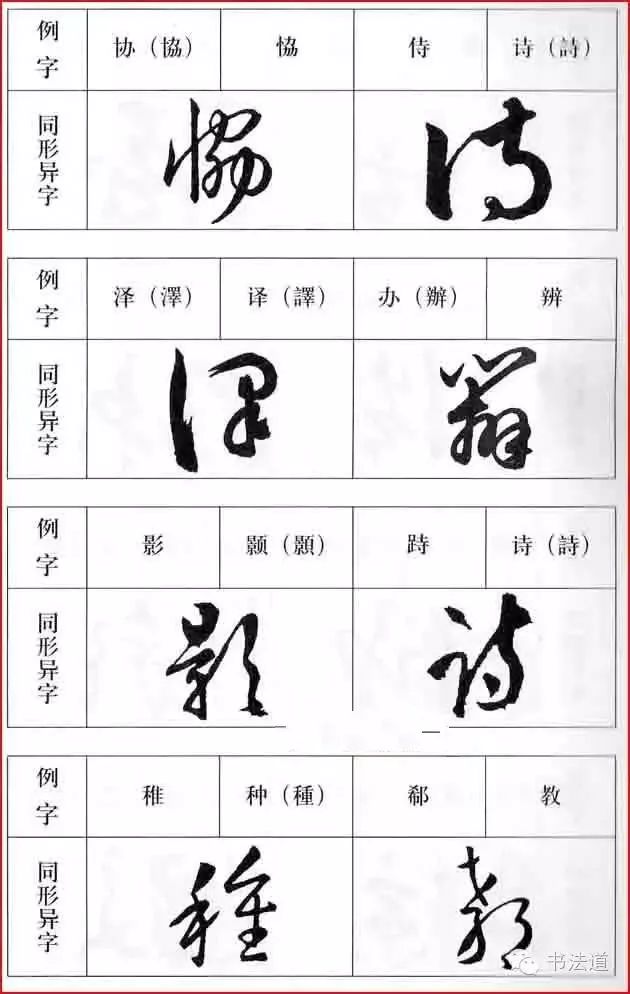 例字 协（協） 恊 侍 诗（詩）
同形异字 恊 诗
例字 泽（澤） 译（譯） 办（辦） 辨
同形异字 译 辨
例字 影 颢（顥） 跱 诗（詩）
同形异字 影 诗
例字 稚 种（種） 郗 教
同形异字 稚 郗
书法道